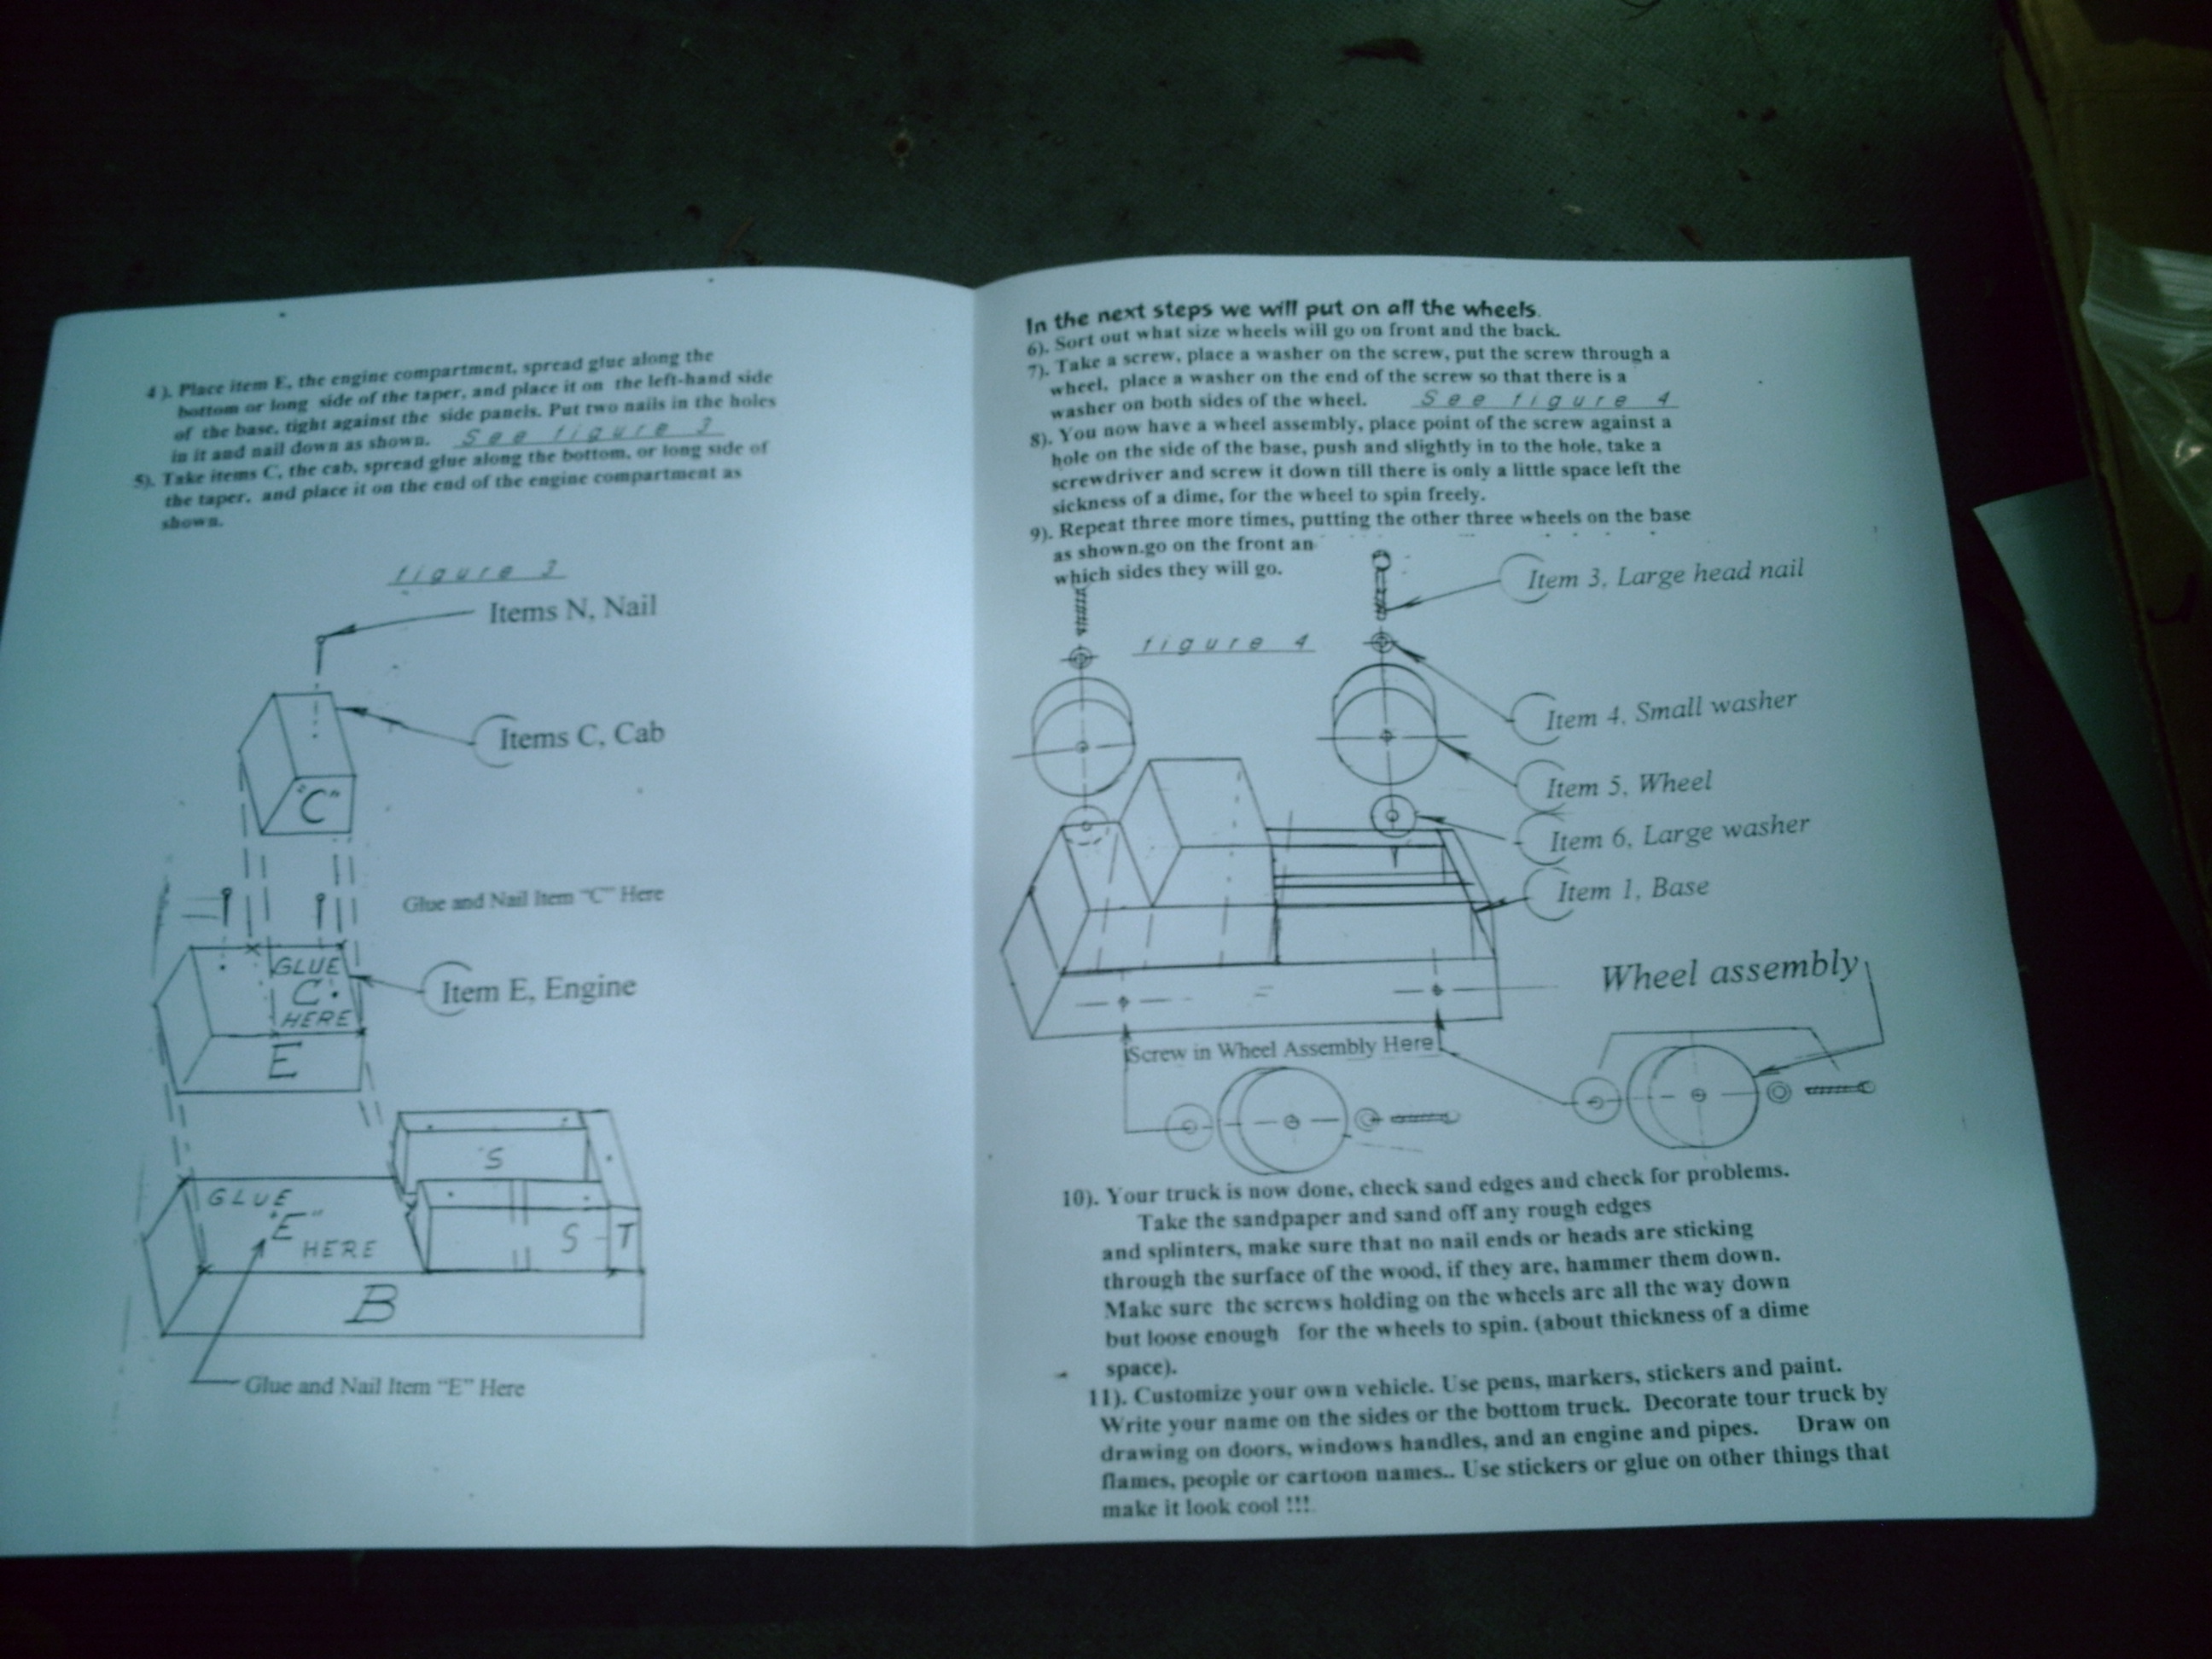 4 ). Place item E, the engine compartment, spread glue along the
bottom or long side of the taper, and place it on the left-hand side
of the base, tight against the side panels. Put two nails in the holes
in it and nail down as shown. See figure 3
5). Take items C, the cab, spread glue along the bottom, or long side of
the taper, and place it on the end of the engine compartment as
shown.
figure 3
Items N, Nail
Items C, Cab
"C"
Glue and Nail Item "C" Here
GLUE
C
HERE
Item E, Engine
E
S
GLUE
"E"
HERE
S - T
B
Glue and Nail Item "E" Here
In the next steps we will put on all the wheels.
6). Sort out what size wheels will go on front and the back.
7). Take a screw, place a washer on the screw, put the screw through a
wheel, place a washer on the end of the screw so that there is a
washer on both sides of the wheel. See figure 4
8). You now have a wheel assembly, place point of the screw against a
hole on the side of the base, push and slightly in to the hole, take a
screwdriver and screw it down till there is only a little space left the
sickness of a dime, for the wheel to spin freely.
9). Repeat three more times, putting the other three wheels on the base
as shown.go on the front an
which sides they will go.
Item 3, Large head nail
figure 4
Item 4, Small washer
Item 5, Wheel
Item 6, Large washer
Item 1, Base
Wheel assembly
Screw in Wheel Assembly Here
10). Your truck is now done, check sand edges and check for problems.
Take the sandpaper and sand off any rough edges
and splinters, make sure that no nail ends or heads are sticking
through the surface of the wood, if they are, hammer them down.
Make sure the screws holding on the wheels are all the way down
but loose enough for the wheels to spin. (about thickness of a dime
space).
11). Customize your own vehicle. Use pens, markers, stickers and paint.
Write your name on the sides or the bottom truck. Decorate tour truck by
drawing on doors, windows handles, and an engine and pipes. Draw on
flames, people or cartoon names.. Use stickers or glue on other things that
make it look cool !!!